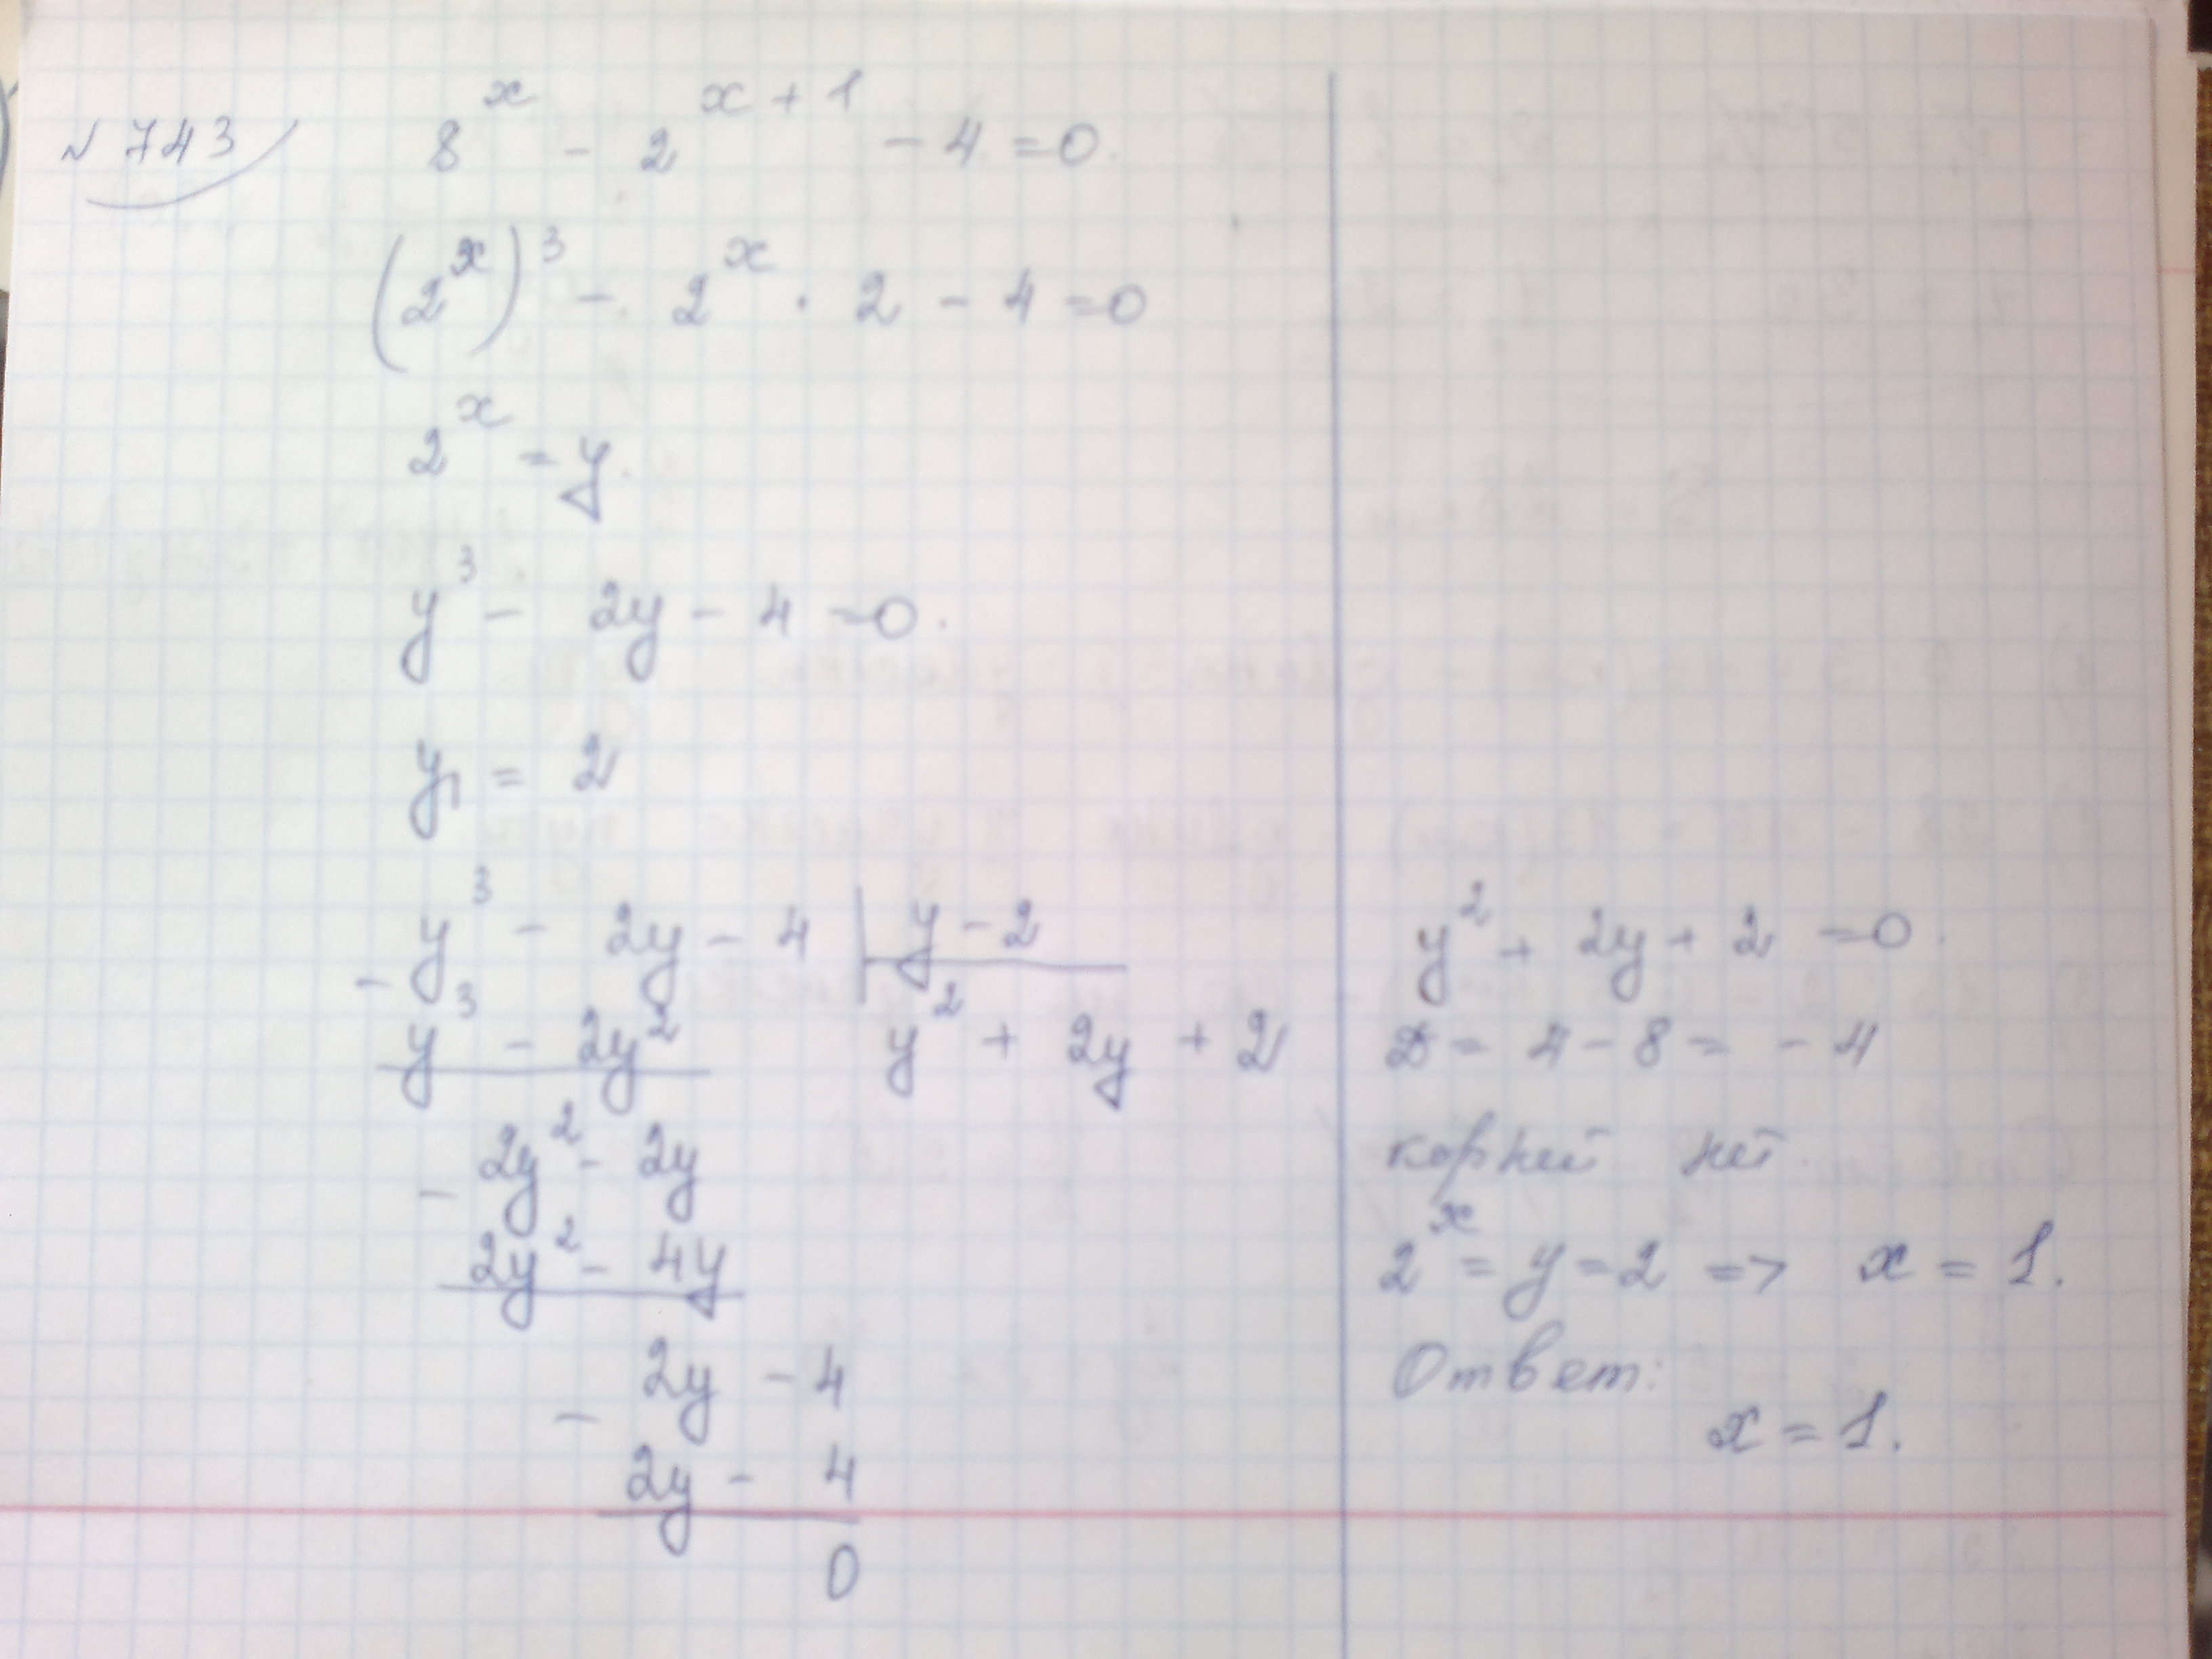 № 743 8^x - 2^(x+1) - 4 = 0.
(2^x)^3 - 2^x · 2 - 4 = 0
2^x = y.
y^3 - 2y - 4 = 0.
y1 = 2
- y^3 - 2y - 4 | y - 2
y^3 - 2y^2 y^2 + 2y + 2
- 2y^2 - 2y
2y^2 - 4y
- 2y - 4
2y - 4
0
y^2 + 2y + 2 = 0.
D = 4 - 8 = - 4
корней нет.
2^x = y = 2 => x = 1.
Ответ:
x = 1.